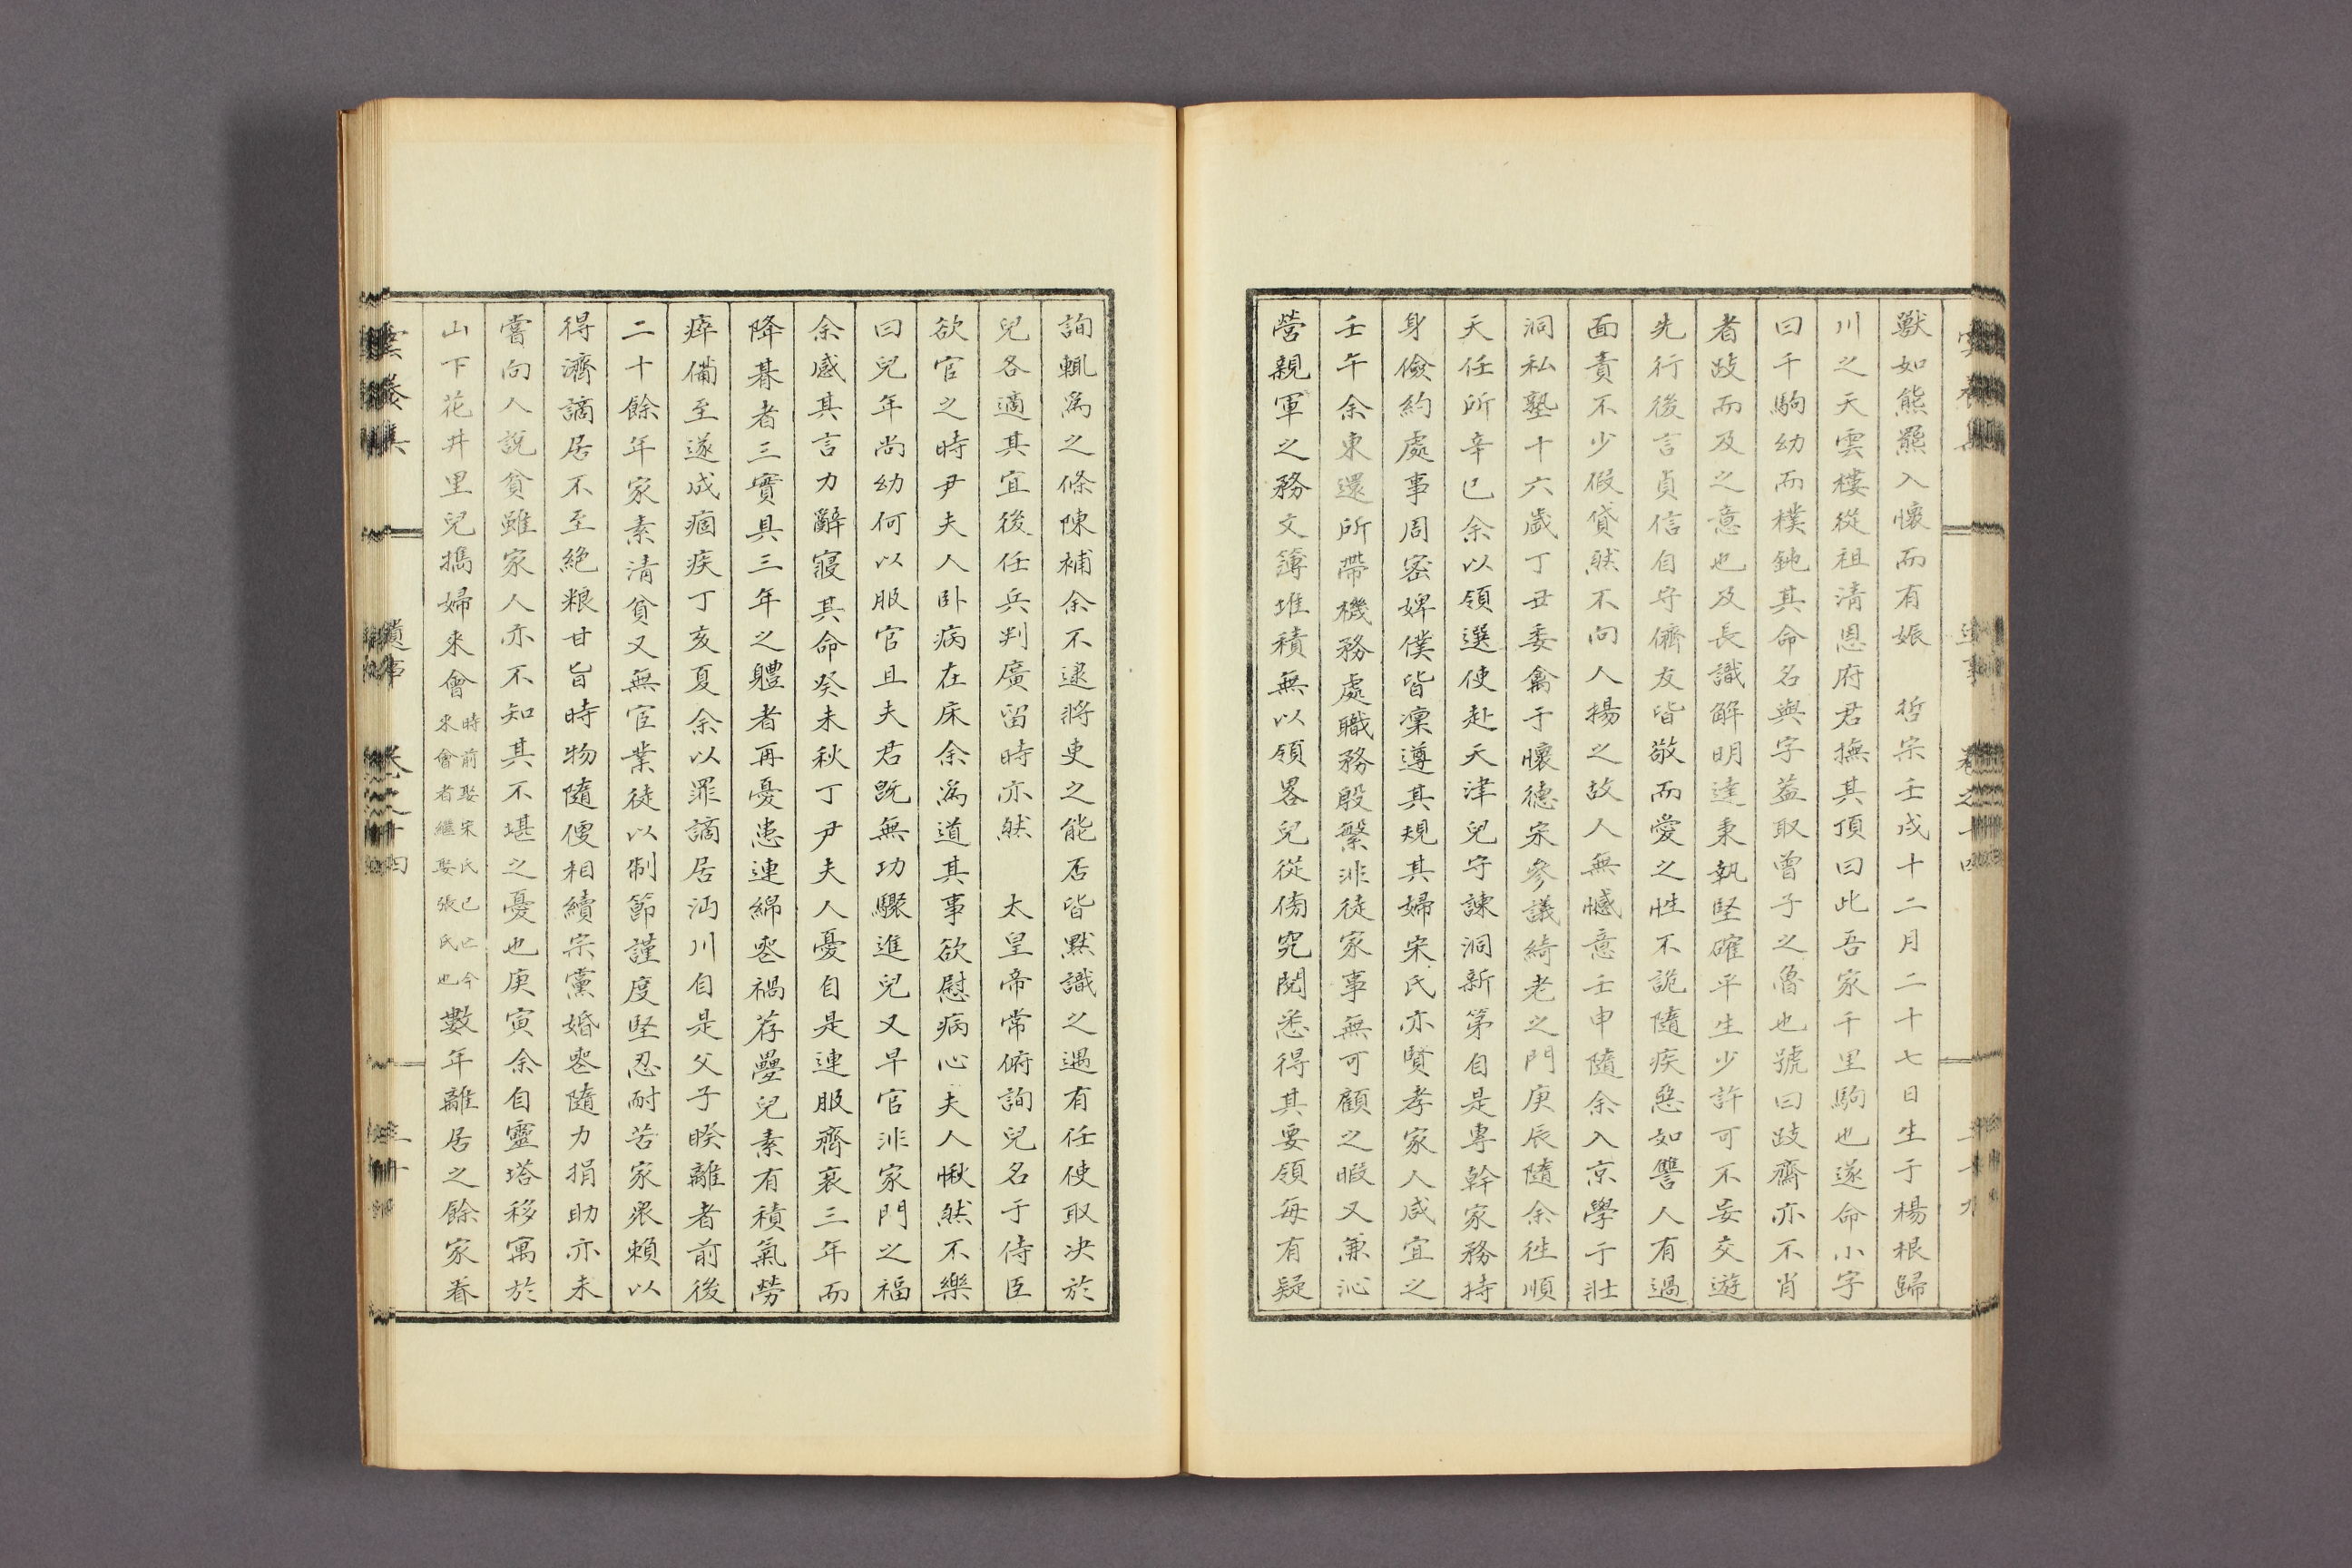 獸如熊羆入懷而有娠　哲宗壬戌十二月二十七日生于楊根歸
川之天雲樓從祖清恩府君撫其頂曰此吾家千里駒也遂命小字
曰千駒幼而樸鈍其命名與字蓋取曾子之魯也號曰跂齋亦不肖
者跂而及之意也及長識解明達秉執堅確平生少許可不妄交遊
先行後言貞信自守儕友皆敬而愛之性不詭隨疾惡如讐人有過
面責不少假貸然不向人揚之故人無憾意壬申隨余入京學于壯
洞私塾十六歲丁丑委禽于懷德宋參議綺老之門庚辰隨余徃順
天任所辛巳余以領選使赴天津兒守諫洞新第自是專幹家務持
身儉約處事周密婢僕皆凜遵其規其婦宋氏亦賢孝家人咸宜之
壬午余東還所帶機務處職務殷繁非徒家事無可顧之暇又兼沁
營親軍之務文簿堆積無以領畧兒從傍究閱悉得其要領每有疑
詢輒爲之條陳補余不逮將吏之能否皆默識之遇有任使取决於
兒各適其宜後任兵判廣留時亦然　太皇帝常俯詢兒名于侍臣
欲官之時尹夫人卧病在床余爲道其事欲慰病心夫人愀然不樂
曰兒年尚幼何以服官且夫君旣無功驟進兒又早官非家門之福
余感其言力辭寢其命癸未秋丁尹夫人憂自是連服齊衰三年而
降朞者三實具三年之軆者再憂患連綿喪禍荐疊兒素有積氣勞
瘁備至遂成痼疾丁亥夏余以罪謫居沔川自是父子睽離者前後
二十餘年家素清貧又無官業徒以制節謹度堅忍耐苦家衆賴以
得濟謫居不至絶粮甘旨時物隨便相續宗黨婚喪隨力捐助亦未
嘗向人說貧雖家人亦不知其不堪之憂也庚寅余自靈塔移寓於
山下花井里兒擕婦來會時前娶宋氏已亡今來會者繼娶張氏也數年離居之餘家眷
遺事